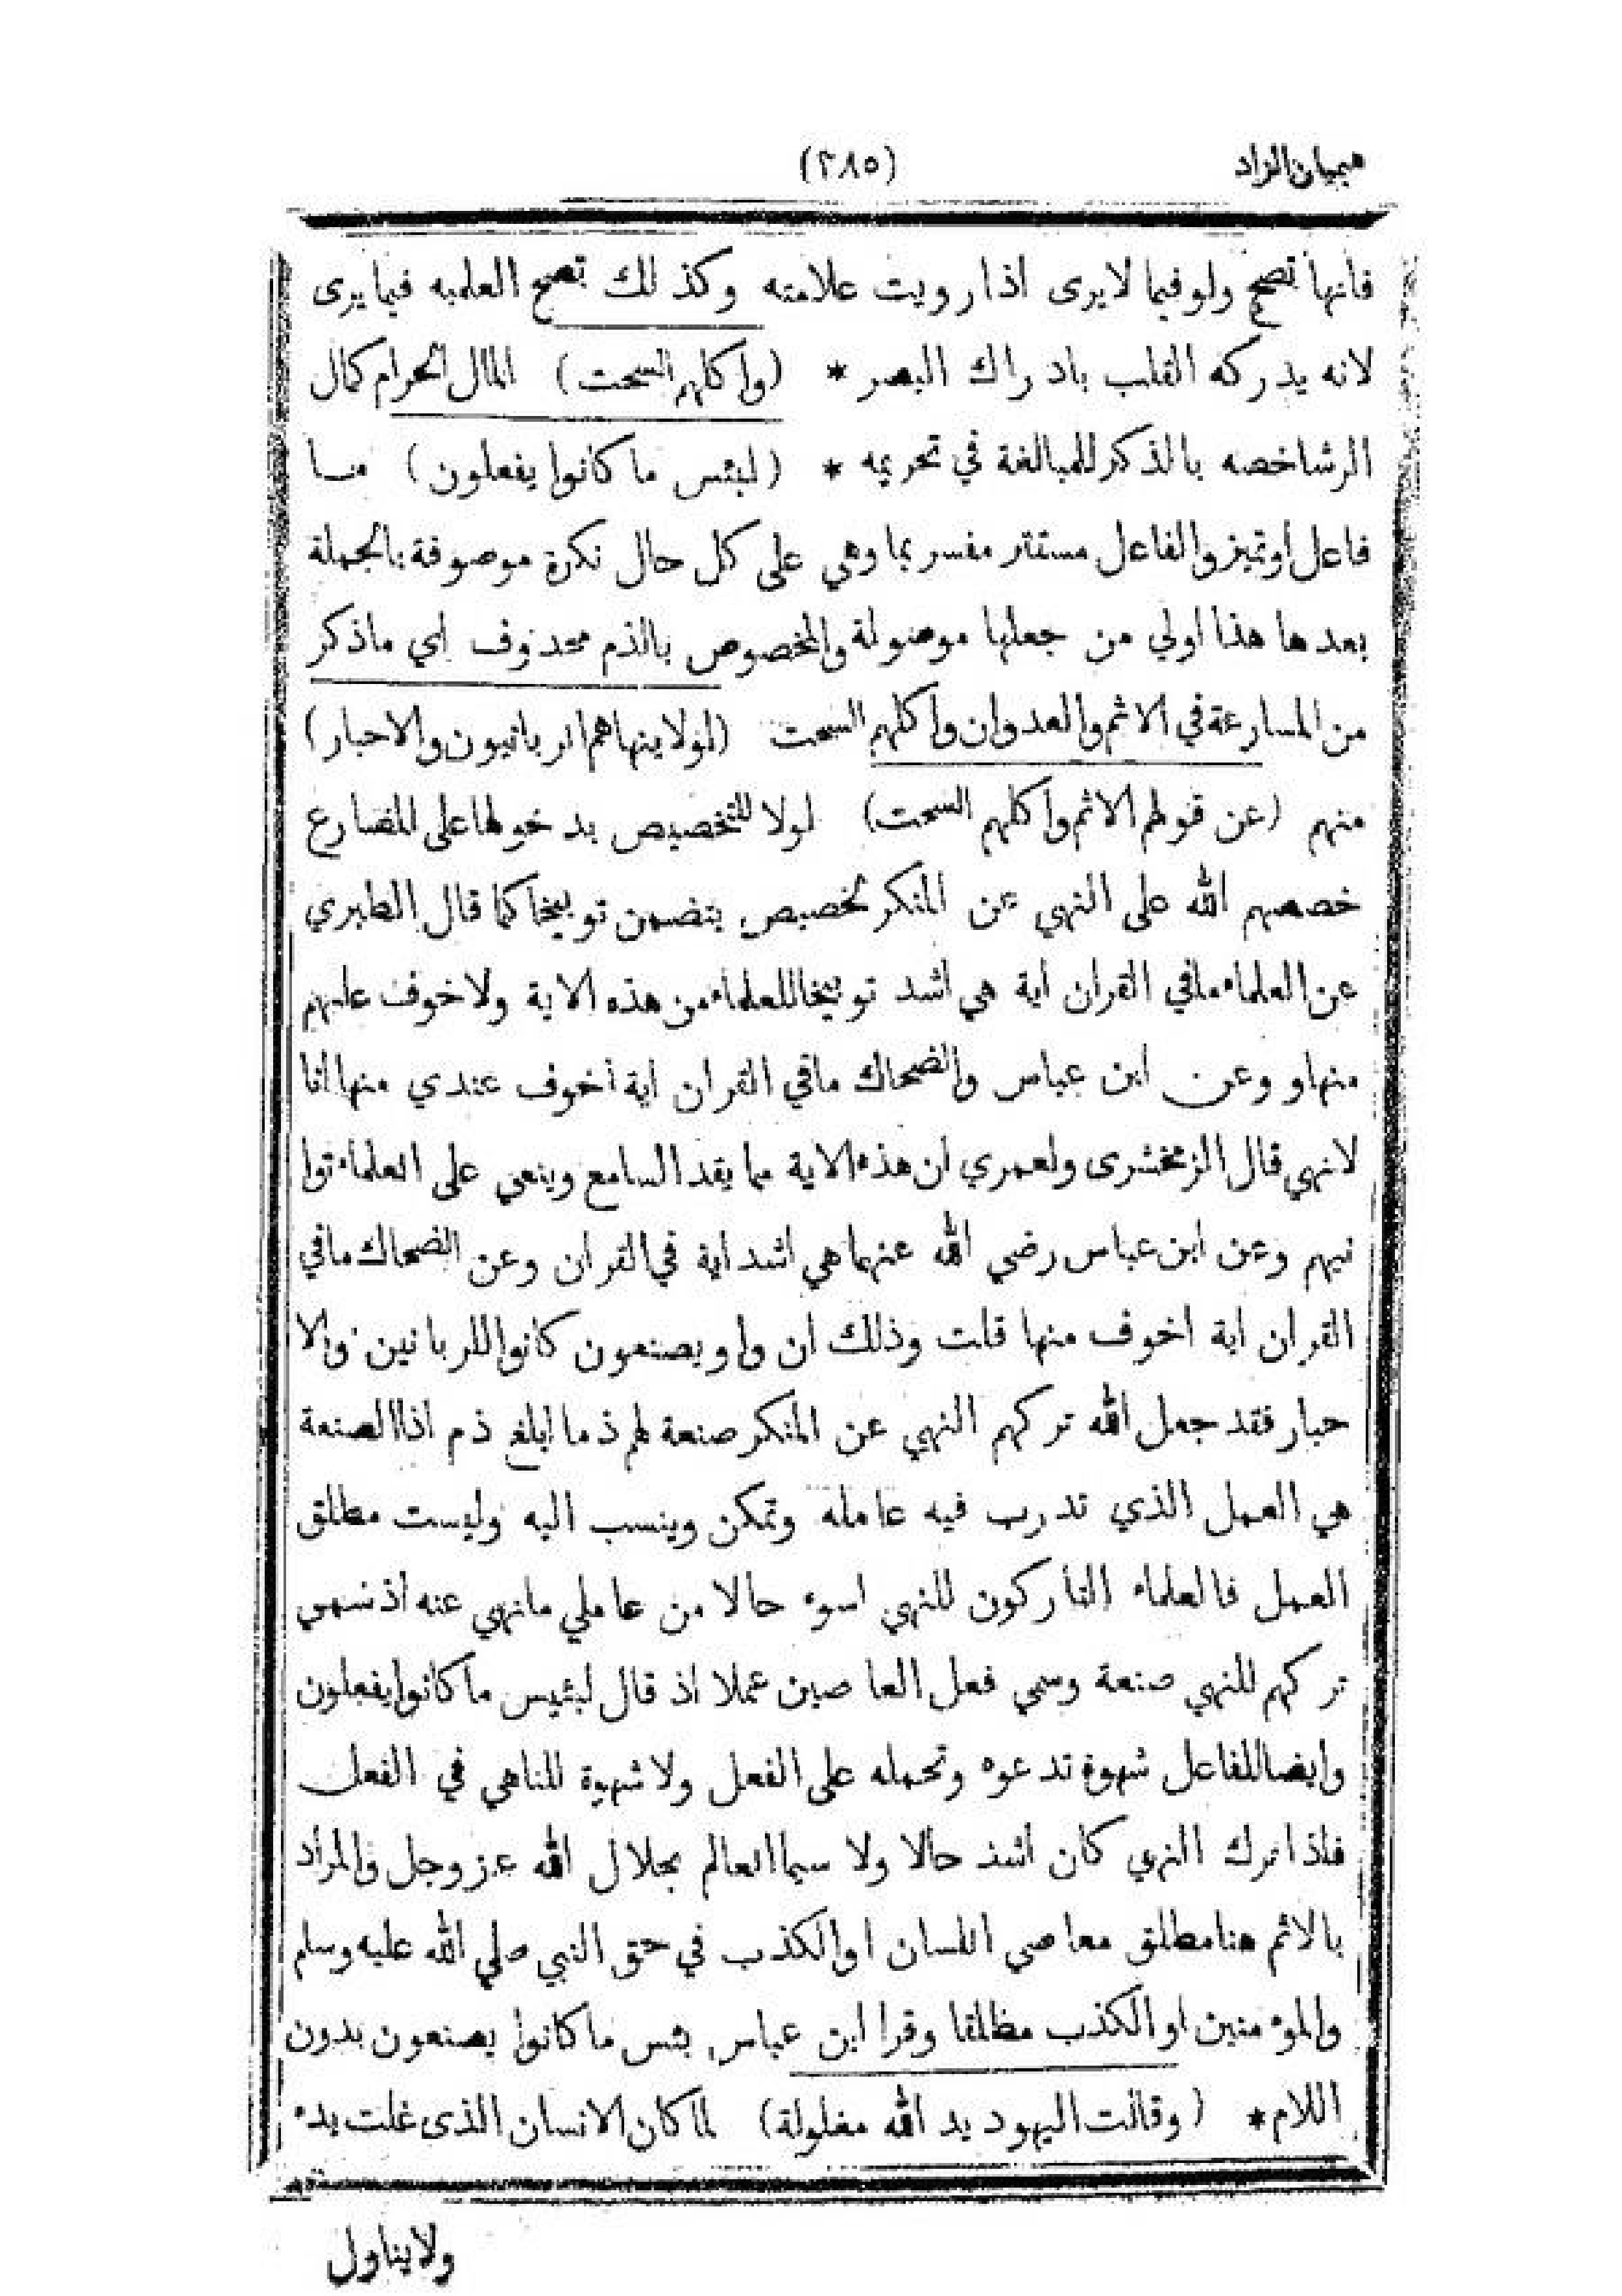 هميان الزاد
(٢٨٥)
فانها تصح ولو فيما لايرى اذا رويت علامته وكذلك تصح العلميه فيما يرى
لانه يدركه القلب بادراك البصر * (واكلهم السحت) المال الحرام كمال
الرشا خصه بالذكر للمبالغة في تحريمه * (لبئس ما كانوا يفعلون) ما
فاعل او تميز والفاعل مستتر مفسر بما وهي على كل حال نكرة موصوفة بالجملة
بعدها هذا اولي من جعلها موصولة والمخصوص بالذم محذوف اي ماذكر
من المسارعة في الاثم والعدوان واكلهم السحت (لولا ينهاهم الربانيون والاحبار)
منهم (عن قولهم الاثم واكلهم السحت) لولا للتخصيص بدخولها على المضارع
خصصهم الله على النهي عن المنكر تخصيص يتضمن توبيخا كما قال الطبري
عن العلماء مافي القران اية هي اشد توبيخا للعلماء من هذه الاية ولاخوف عليهم
منها و وعن ابن عباس والضحاك مافي القران اية اخوف عندي منها انا
لانهي قال الزمخشرى ولعمري ان هذه الاية مما يقد السامع وينعي على العلماء توا
نيهم وعن ابن عباس رضي الله عنهما هي اشد اية في القران وعن الضحاك مافي
القران اية اخوف منها قلت وذلك ان واو يصنعون كانوا للربانين والا
حبار فقد جعل الله تركهم النهي عن المنكر صنعة لهم ذما ابلغ ذم اذا الصنعة
هي العمل الذي تدرب فيه عامله وتمكن وينسب اليه وليست مطلق
العمل فالعلماء التاركون للنهي اسوء حالا من عاملي مانهي عنه اذ سمى
تركهم للنهي صنعة وسمي فعل العاصين عملا اذ قال لبئيس ماكانوا يفعلون
وايضا للفاعل شهوة تدعوه وتحمله على الفعل ولا شهوة للناهي في الفعل
فاذا ترك النهي كان اشد حالا ولا سيما العالم بجلال الله عز وجل والمراد
بالاثم هنا مطلق معاصي اللسان او الكذب في حق النبي صلي الله عليه وسلم
والموءمنين او الكذب مطلقا وقرا ابن عباس بئس ماكانوا يصنعون بدون
اللام * (وقالت اليهود يد الله مغلولة) لما كان الانسان الذى غلت يده
ولايناول